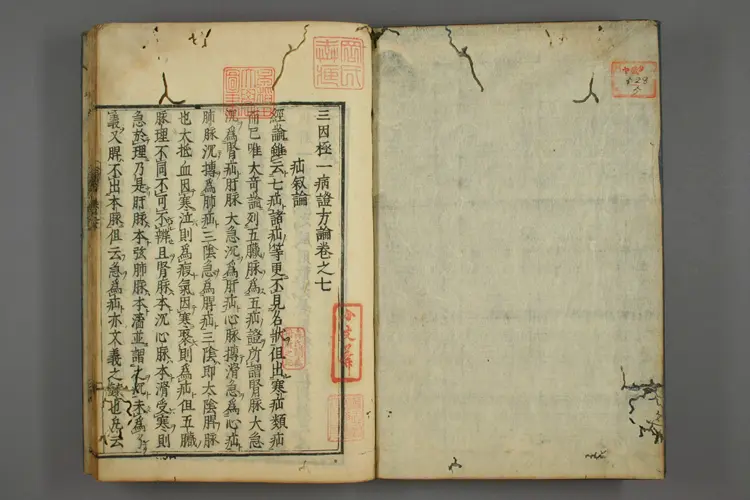 三因極一病證方論卷之七
疝叙論
經論雖云七疝諸疝等更不見名狀但出寒疝類疝
而已唯大奇論列五臟脉為五疝證所謂腎脉大急
沉為腎疝肝脉大急沉為肝疝心脉搏滑急為心疝
肺脉沉搏為肺疝三陰急為脾疝三陰即太陰脾脉
也大抵血因寒泣則為瘕氣因寒聚則為疝但五臟
脉理不同不可不辨且腎脉本沉心脉本滑受寒則
急於理乃是肝脉本弦肺脉本濇並謂之沉未為
義又脾不出本脉但云急為疝亦文義之也凡云